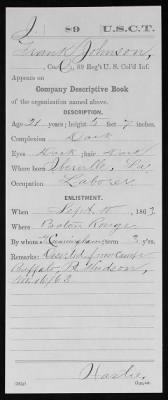 J 89 U.S.C.T.
Frank Johnson,
Co. , 89 Reg't U. S. Col'd Inf.
Appears on
Company Descriptive Book
of the organization named above.
DESCRIPTION.
Age 21 years; height 5 feet 7 inches.
Complexion Dark
Eyes Dark; hair Dark
Where born Iberville, La
Occupation Laborer
ENLISTMENT.
When Sept. 10, 1863
Where Baton Rouge
By whom Cunningham; term 3 y'rs.
Remarks: Deserted from Camp
Buffalo, Pt. Hudson,
Copyist.